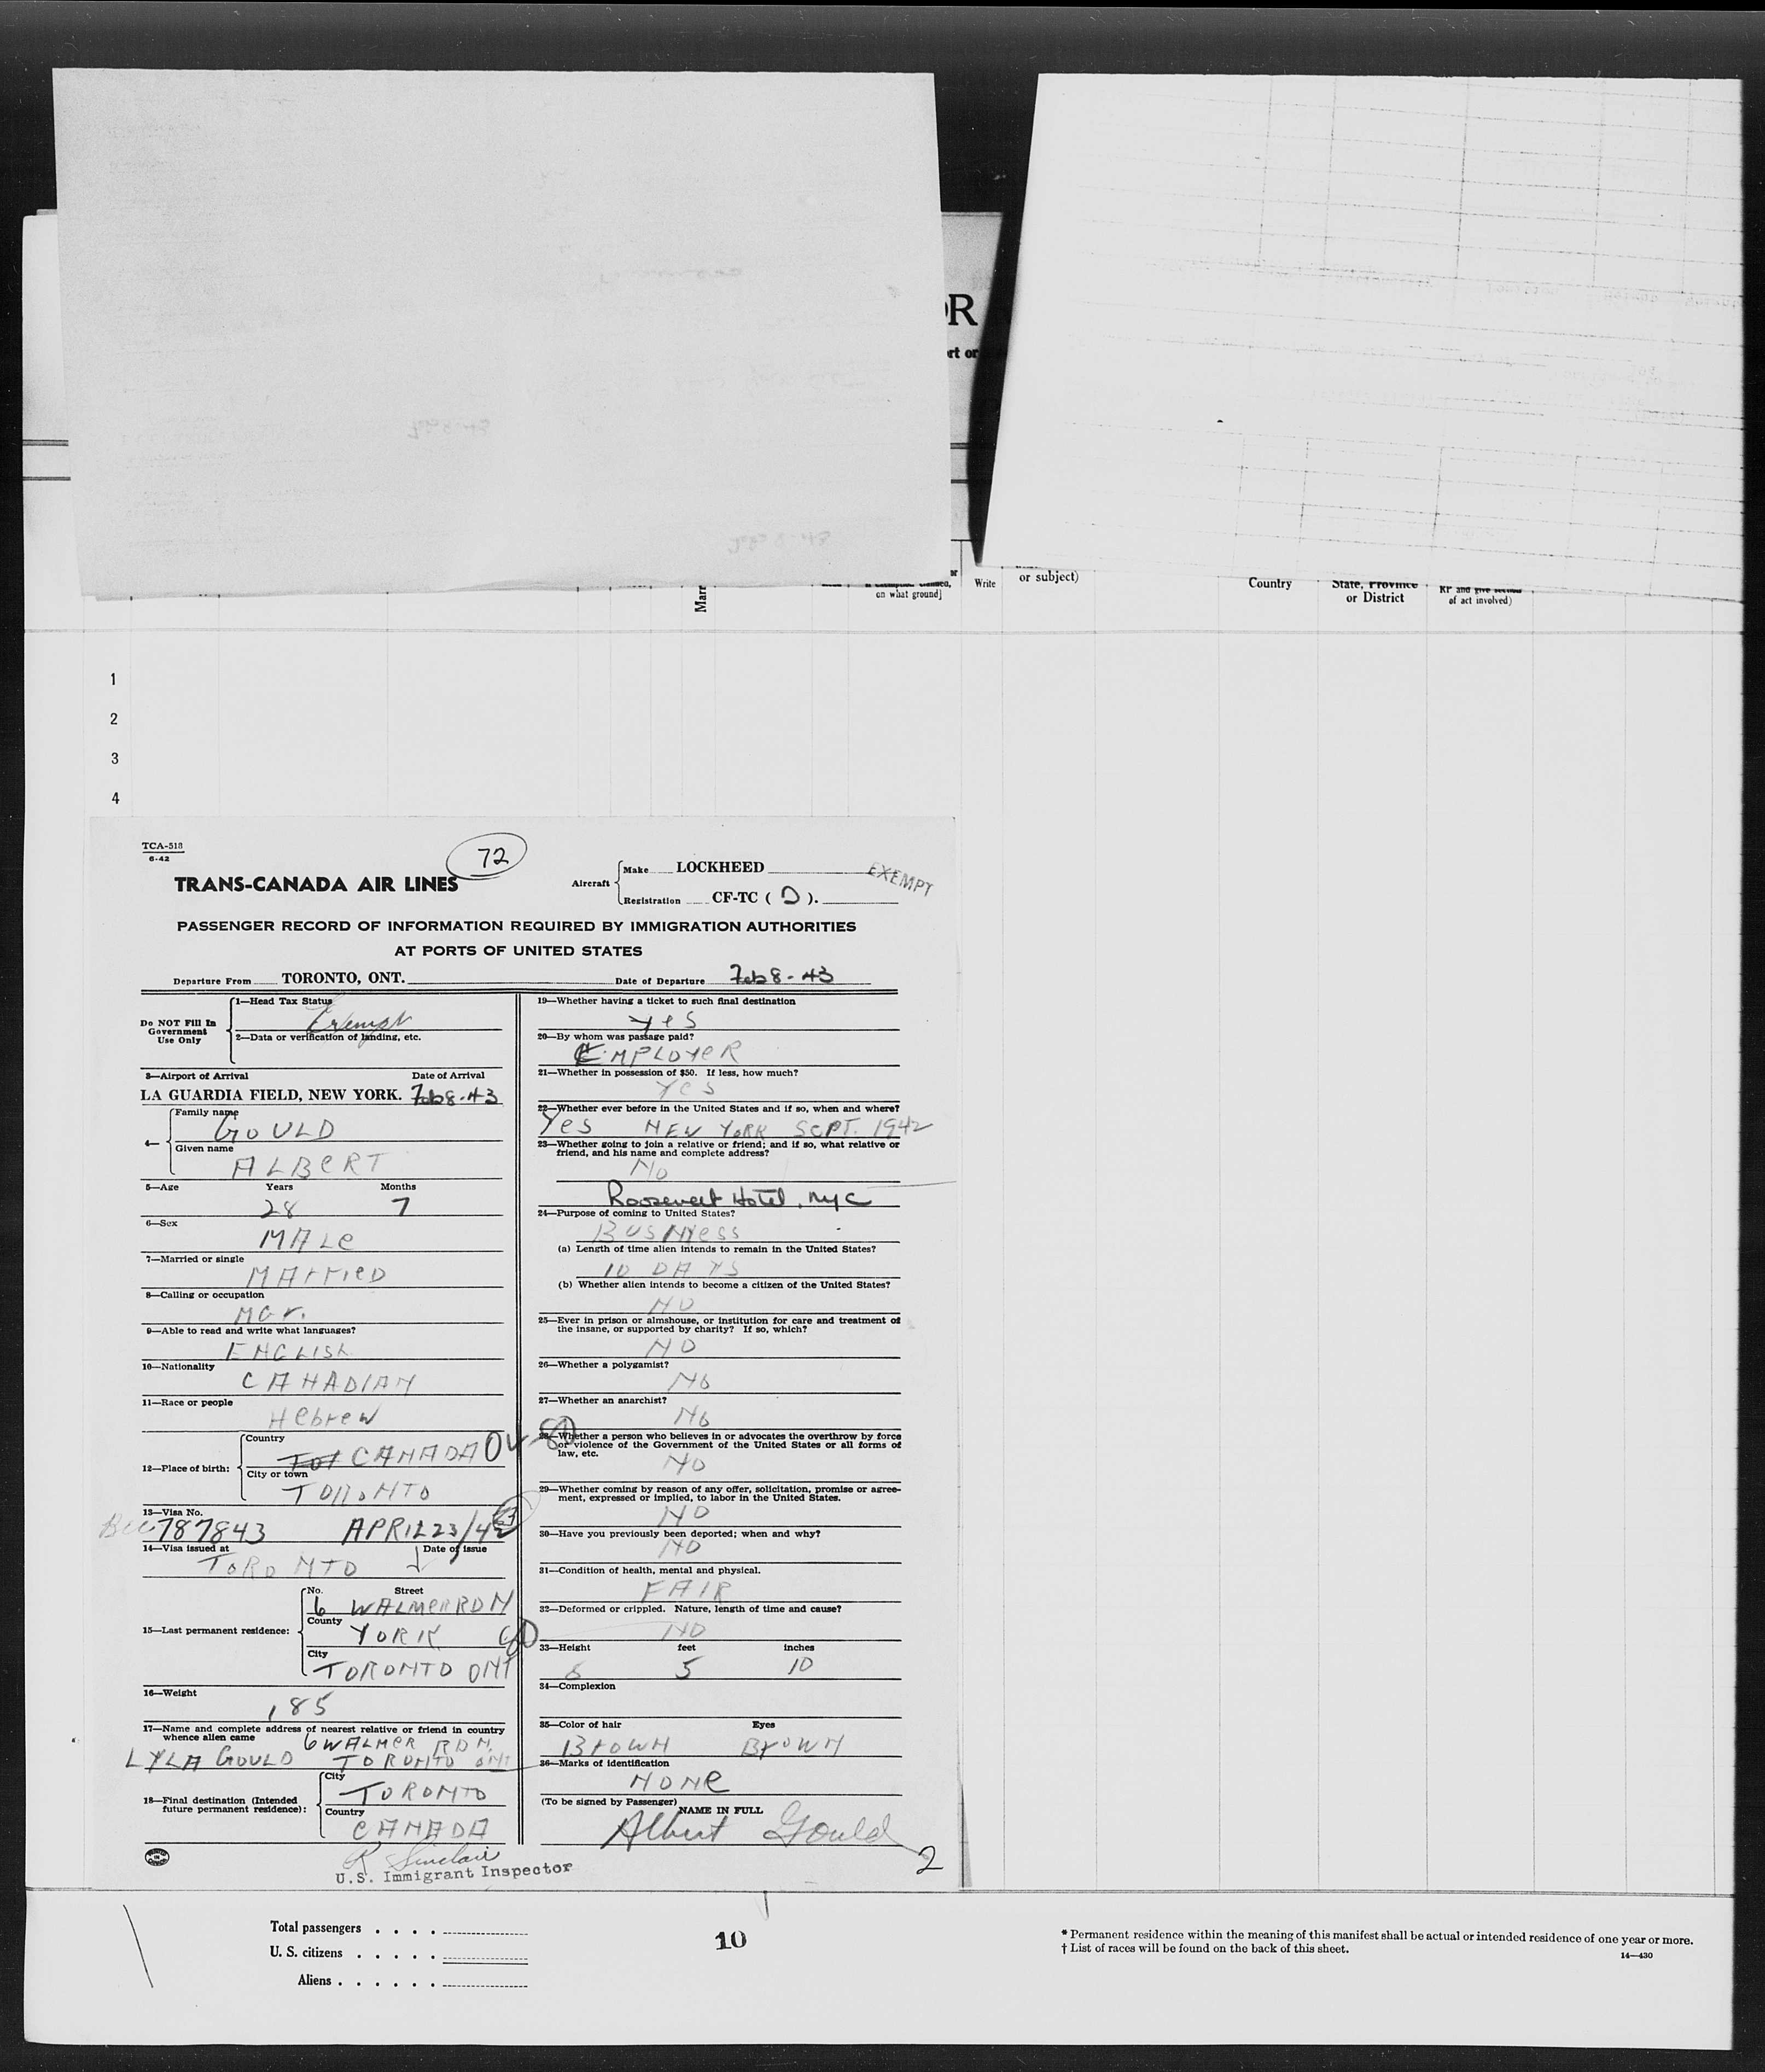 OR
rt or
or
on what ground]
Write
or subject)
Country
State, Province
or District
RP and give section
of act involved)
Marr
1
2
3
4
TCA-518
6-42
72
TRANS-CANADA AIR LINES
Aircraft
Make LOCKHEED
Registration CF-TC ( D ).
EXEMPT
PASSENGER RECORD OF INFORMATION REQUIRED BY IMMIGRATION AUTHORITIES
AT PORTS OF UNITED STATES
Departure From TORONTO, ONT. Date of Departure Feb 8 - 43
Do NOT Fill In
Government
Use Only
1—Head Tax Status
Exempt
2—Data or verification of landing, etc.
3—Airport of Arrival Date of Arrival
LA GUARDIA FIELD, NEW YORK. Feb 8-43
4—
Family name
GOULD
Given name
ALBERT
5—Age Years Months
28 7
6—Sex
MALe
7—Married or single
MArrieD
8—Calling or occupation
MGr.
9—Able to read and write what languages?
ENGLISh
10—Nationality
CANADIAN
11—Race or people
Hebrew
12—Place of birth:
Country
CANADA
City or town
TORONTO
13—Visa No.
787843 APRIL 23/42
14—Visa issued at Date of issue
TORONTO
15—Last permanent residence:
No. Street
6 WALMER RD N
County
YORK
City
TORONTO ONT
16—Weight
185
17—Name and complete address of nearest relative or friend in country
whence alien came
6 WALMER RD N.
LYLA GOULD TORONTO ONT
18—Final destination (Intended
future permanent residence):
City
TORONTO
Country
CANADA
R Sinclair
U.S. Immigrant Inspector
19—Whether having a ticket to such final destination
yes
20—By whom was passage paid?
EMPLOYeR
21—Whether in possession of $50. If less, how much?
Yes
22—Whether ever before in the United States and if so, when and where?
Yes NEW YORK SEPT. 1942
23—Whether going to join a relative or friend; and if so, what relative or
friend, and his name and complete address?
No
Roosevelt Hotel, NYC
24—Purpose of coming to United States?
BUSNYess
(a) Length of time alien intends to remain in the United States?
10 DAYS
(b) Whether alien intends to become a citizen of the United States?
NO
25—Ever in prison or almshouse, or institution for care and treatment of
the insane, or supported by charity? If so, which?
NO
26—Whether a polygamist?
No
27—Whether an anarchist?
No
28—Whether a person who believes in or advocates the overthrow by force
or violence of the Government of the United States or all forms of
law, etc.
NO
29—Whether coming by reason of any offer, solicitation, promise or agree-
ment, expressed or implied, to labor in the United States.
NO
30—Have you previously been deported; when and why?
NO
31—Condition of health, mental and physical.
FAIR
32—Deformed or crippled. Nature, length of time and cause?
NO
33—Height feet inches
5 10
34—Complexion
35—Color of hair Eyes
BrOWN BrOWN
36—Marks of identification
NONe
(To be signed by Passenger)
NAME IN FULL
Albert Gould
2
Total passengers . . . .
U. S. citizens . . . . .
Aliens . . . . . .
10
* Permanent residence within the meaning of this manifest shall be actual or intended residence of one year or more.
† List of races will be found on the back of this sheet.
14—430